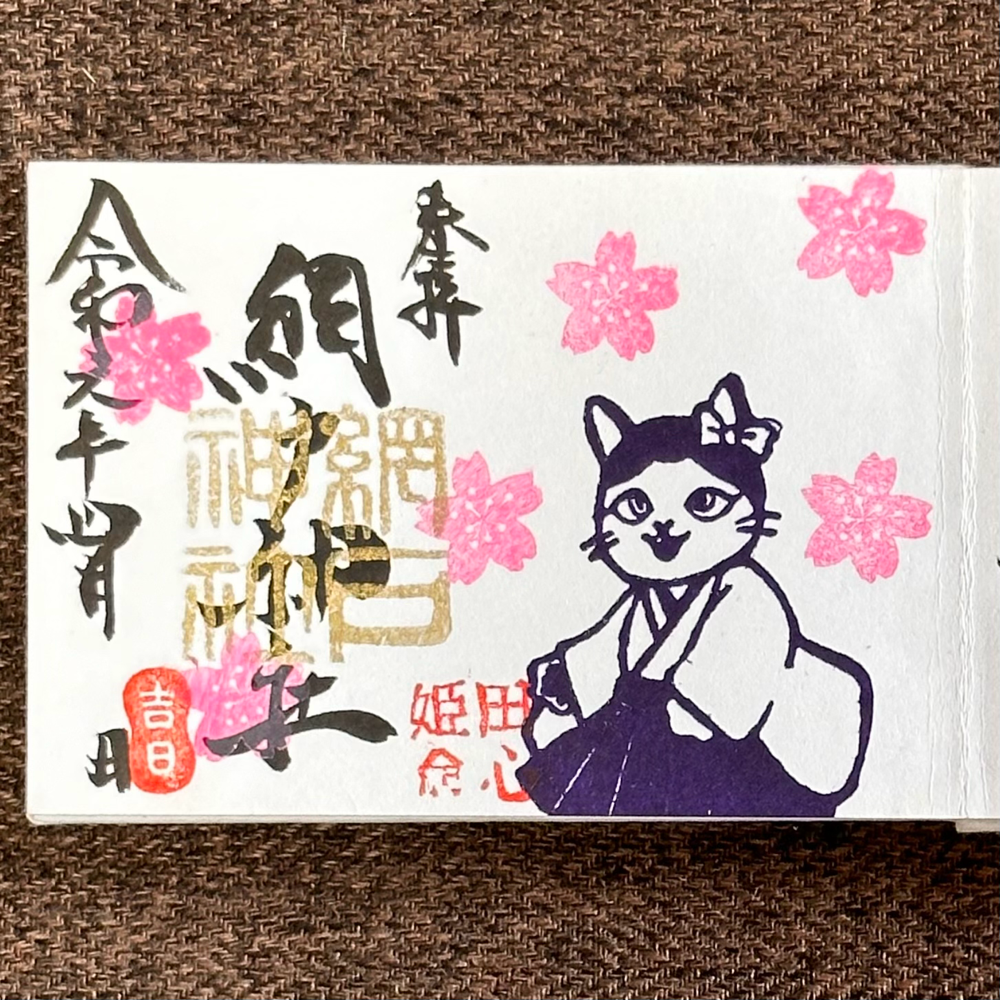 奉拝
網戸神社
網戸神社
令和六年四月
吉日
日
田心
姫命